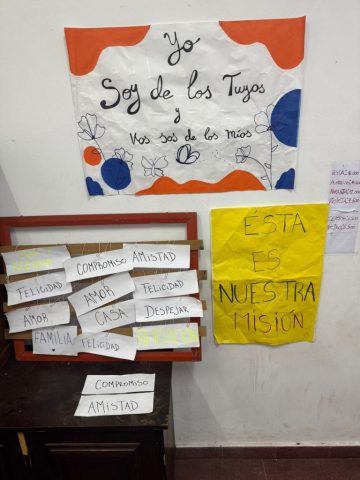 Yo
Soy de los Tuyos
y
Vos sos de los míos
ÉSTA
ES
NUESTRA
MISIÓN
COMPROMISO
AMISTAD
FELICIDAD
AMOR
FELICIDAD
AMOR
CASA
DESPEJAR
FAMILIA
FELICIDAD
COMPROMISO
AMISTAD